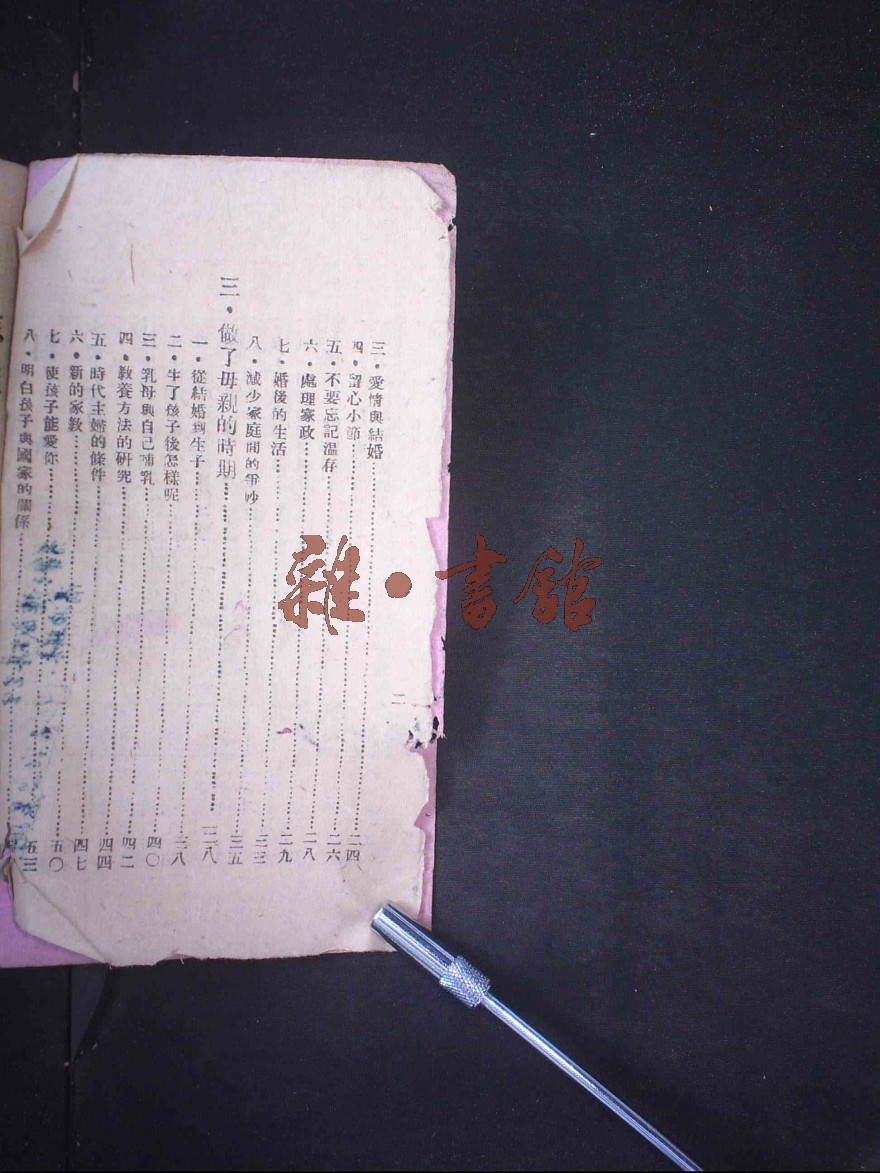 二
三・愛情與結婚……二四
四・留心小節……二六
五・不要忘記温存……二八
六・處理家政……二九
七・婚後的生活……三三
八・減少家庭間的爭吵……三五
三・做了母親的時期……三八
一・從結婚到生子……三八
二・生了孩子後怎樣呢……四〇
三・乳母與自己哺乳……四二
四・教養方法的研究……四四
五・時代主婦的條件……四七
六・新的家教……五〇
七・使孩子能愛你……五三
八・明白孩子與國家的關係……
雜・書館